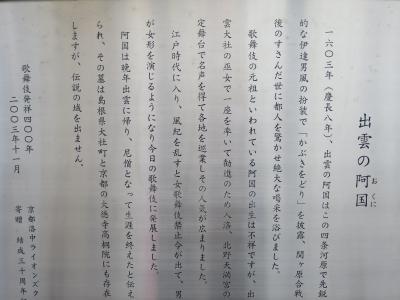 出雲の阿国
おくに
一六〇三年(慶長八年)、出雲の阿国はこの四条河原で先鋭
的な伊達男風の扮装で「かぶきをどり」を披露、関ヶ原合戦
後のすさんだ世に都人を驚かせ絶大な喝采を浴びました。
歌舞伎の元祖といわれている阿国の出生は不祥ですが、出
雲大社の巫女で一座を率いて勧進のため入洛、北野天満宮の
定舞台で名声を得て各地を巡業しその人気が広まりました。
江戸時代に入り、風紀を乱すと女歌舞伎禁止令が出て、男
が女形を演じるようになり今日の歌舞伎に発展しました。
阿国は晩年出雲に帰り、尼僧となって生涯を終えたと伝え
られ、その墓は島根県大社町と京都の大徳寺高桐院にも存在
しますが、伝説の域を出ません。
歌舞伎発祥四〇〇年
二〇〇三年十一月
京都洛中ライオンズク
寄贈 結成三十周年